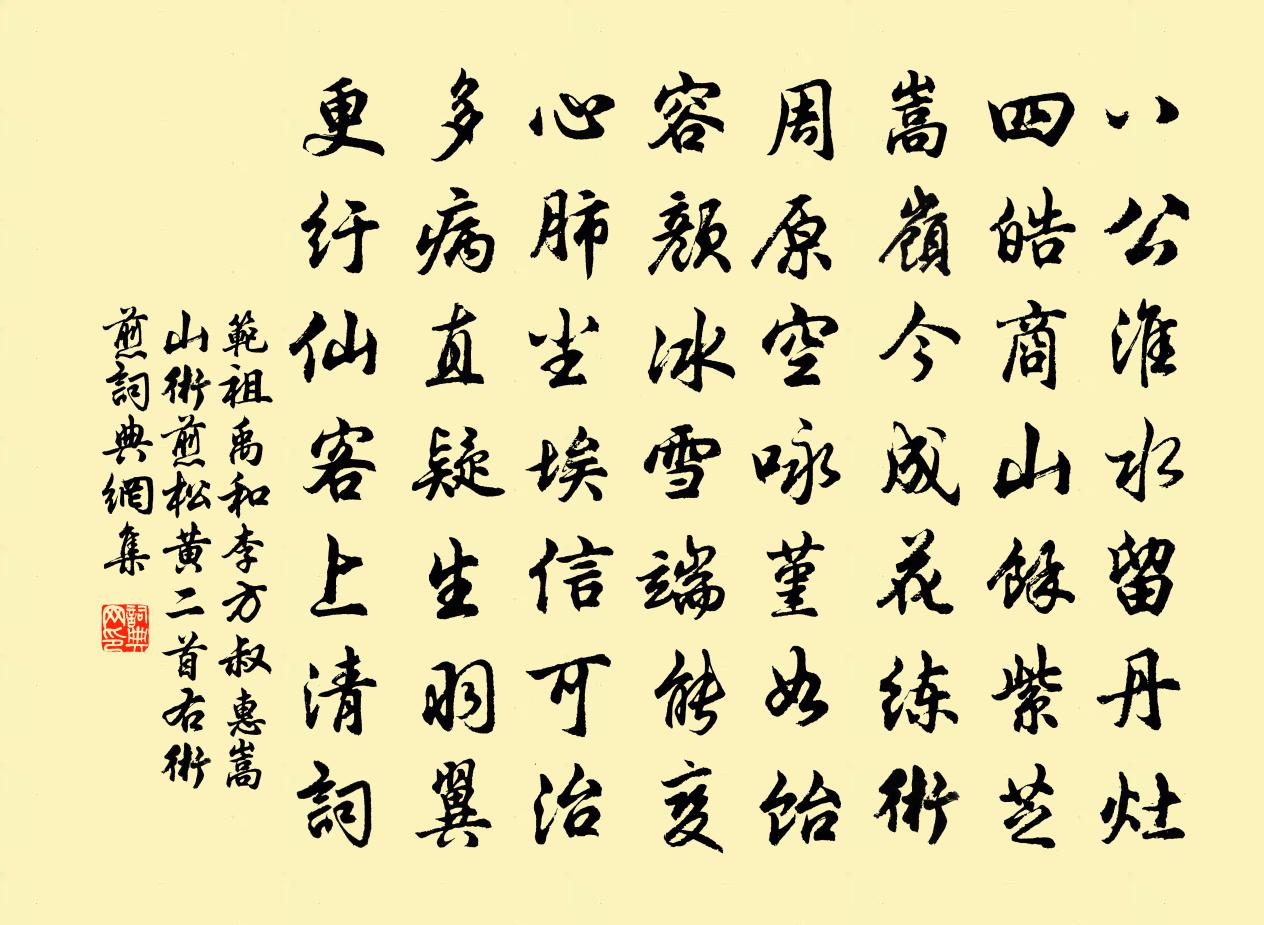 八公淮水留丹灶
四皓商山餘紫芝
嵩嶺今成花練術
周原空咏堇如飴
容顏冰雪端能変
心肺尘埃信可治
多病直疑生羽翼
更纡仙客上清詞
範祖禹和李方叔惠嵩
山術煎松黄二首右術
煎詞典網集
詞典网印